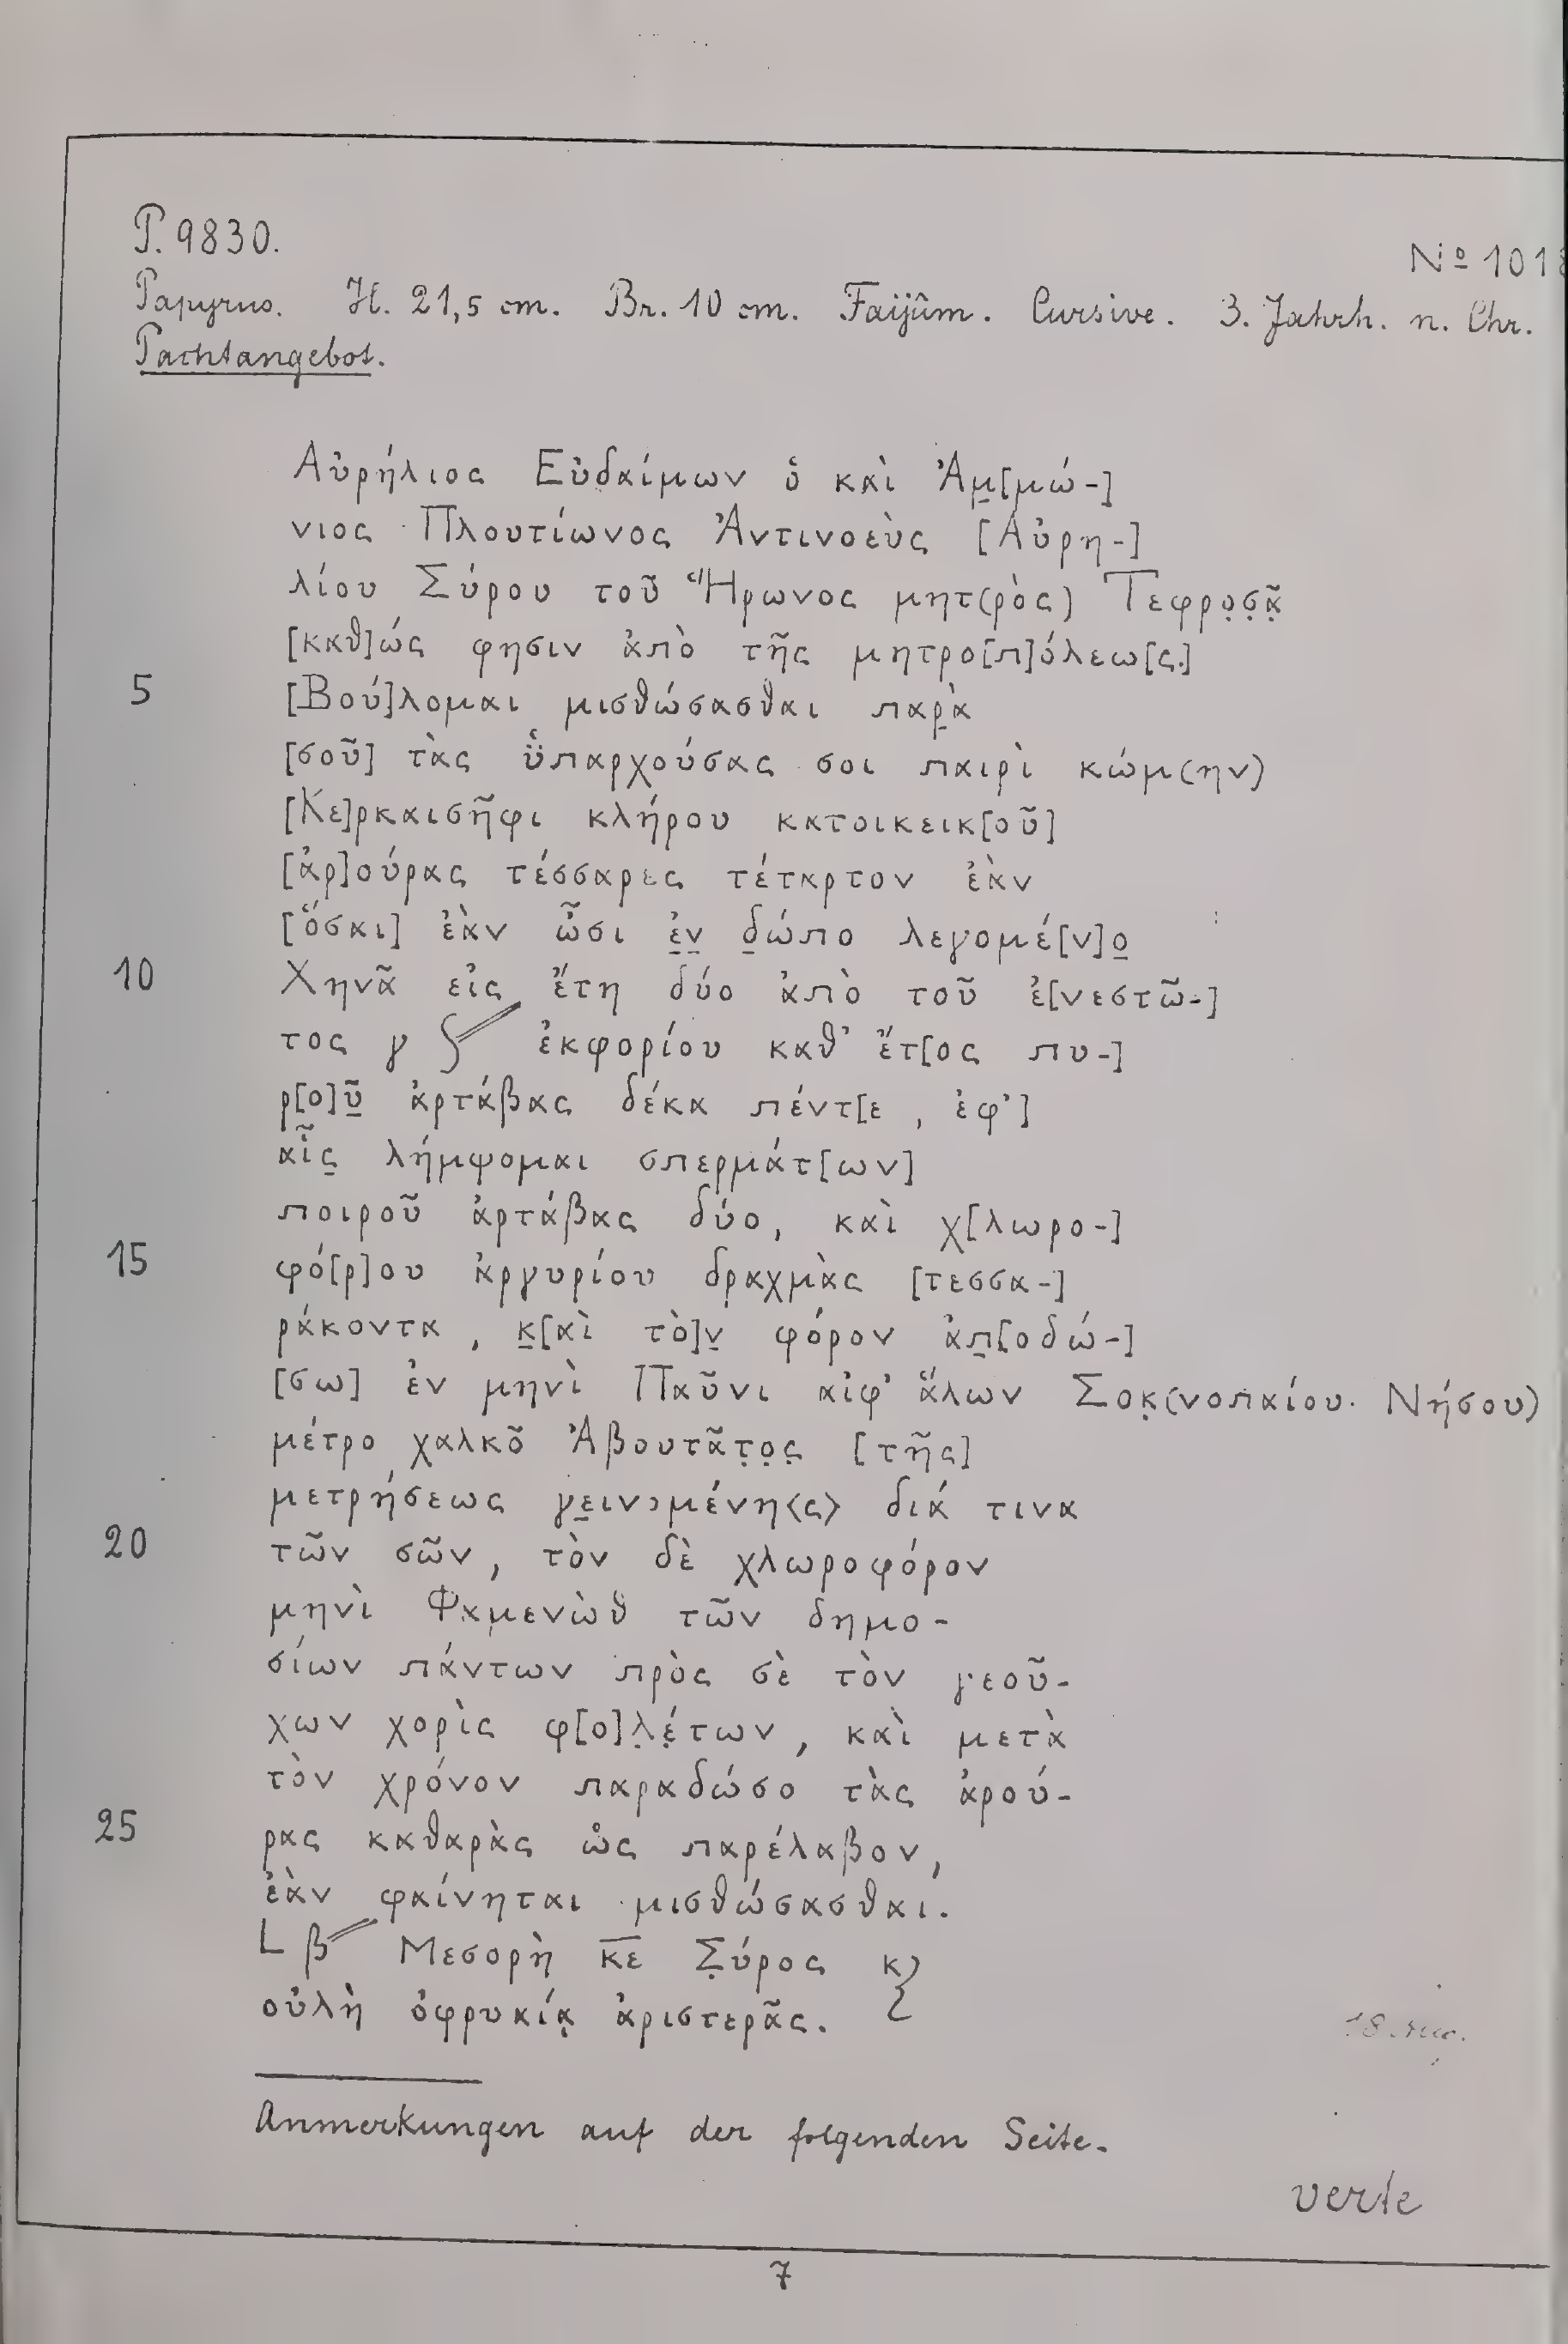 P. 9830.
Nº 1018
Papyrus. H. 21,5 cm. Br. 10 cm. Faijûm. Cursive. 3. Jahrh. n. Chr.
Pachtangebot.
Αὐρήλιος Εὐδαίμων ὁ καὶ Ἀμ̣[μώ-]
νιος Πλουτίωνος Ἀντινοεὺς [Αὐρη-]
λίου Σύρου τοῦ Ἥρωνος μητ(ρὸς) Τεφρο̣σ̣ᾶ̣
[καθ]ώς φησιν ἀπὸ τῆς μητρο[π]όλεω[ς.]
5 [Βού]λομαι μισθώσασθαι παρ̣ὰ
[σοῦ] τὰς ὑ̈παρχούσας σοι παιρὶ κώμ(ην)
[Κε]ρκαισῆφι κλήρου κατοικεικ[οῦ]
[ἀρ]ούρας τέσσαρες τέταρτον ἐὰν
[ὅσαι] ἐὰν ὦσι ἐ̣ν̣ δ̣ώπο λεγομέ[ν]ο̣
10 Χηνᾶ εἰς ἔτη δύο ἀπὸ τοῦ ἐ[νεστῶ-]
τος γ ʃ// ἐκφορίου καθ' ἔτ[ος πυ-]
ρ[ο]ῦ̣ ἀρτάβας δέκα πέντ[ε, ἐφ']
αἷς̣ λήμψομαι σπερμάτ[ων]
ποιροῦ ἀρτάβας δύο, καὶ χ[λωρο-]
15 φό[ρ]ου ἀργυρίου δραχμὰς [τεσσα-]
ράκοντα, κ̣[αὶ τὸ]ν̣ φόρον ἀπ̣[οδώ-]
[σω] ἐν μηνὶ Παῦνι αἰφ' ἅλων Σοκ̣(νοπαίου Νήσου)
μέτρο χαλκο͂ Ἀβουτᾶτ̣ο̣ς̣ [τῆς]
μετρήσεως γε̣ινομένη⟨ς⟩ διά τινα
20 τῶν σῶν, τὸν δὲ χλωροφόρον
μηνὶ Φαμενὼθ τῶν δημο-
σίων πάντων πρὸς σὲ τὸν γεοῦ-
χων χορὶς φ[ο]λ̣έ̣των, καὶ μετὰ
τὸν χρόνον παραδώσο τὰς ἀρού-
25 ρας καθαρὰς ὡς παρέλαβον,
ἐὰν φαίνηται μισθώσασθαι.
L β// Μεσορὴ κ̅ε̅ Σ̣ύρος κ}
οὐλὴ ὀφρυαίᾳ ἀριστερᾶς.
18. Aug.
Anmerkungen auf der folgenden Seite.
verte
7